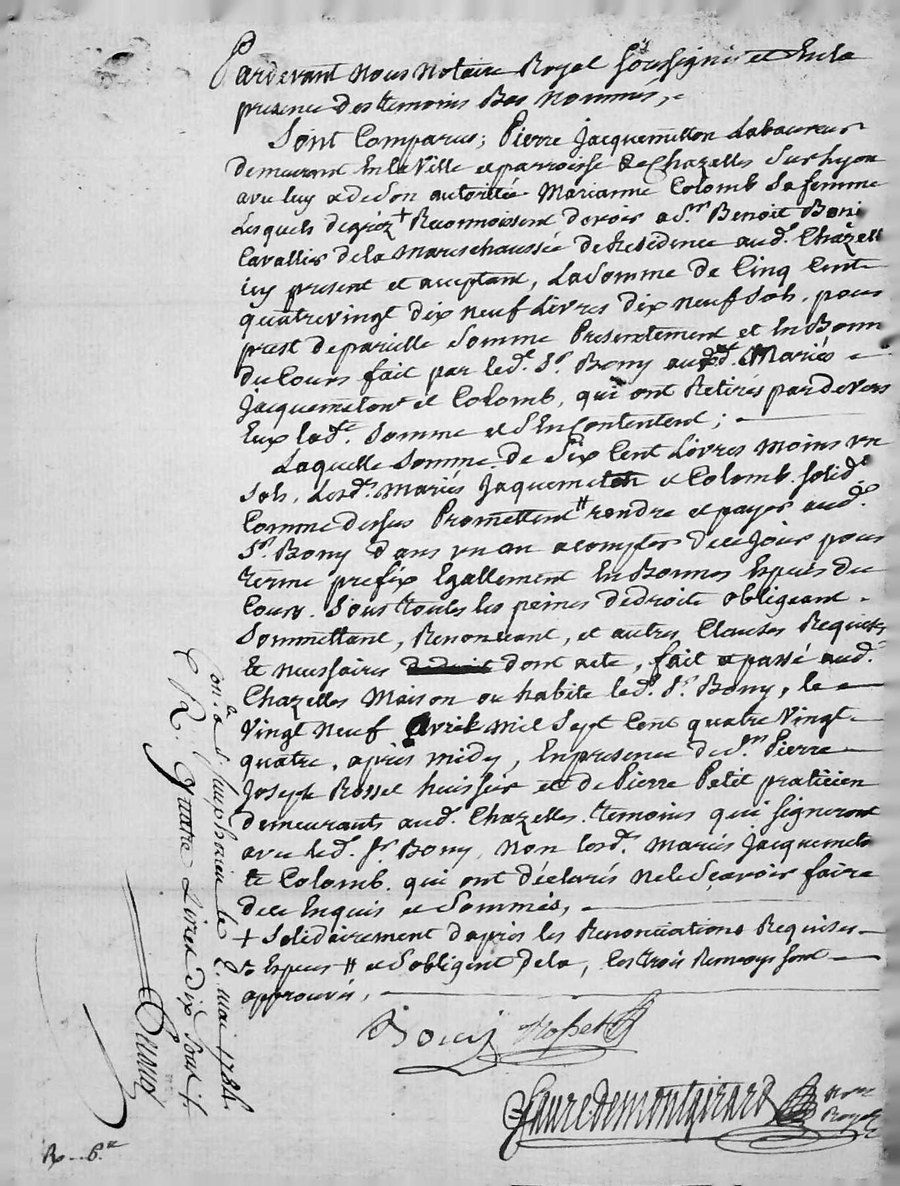 Pardevant Nous Notaire Royal Soussigné et En la
presence des temoins Bas nommes,
Sont Comparus; Pierre Jacquemetton Laboureur
demeurant En la Ville et parroisse de Chazelles Sur Lyon
avec luy et de Son autorittée Marianne Colomb Sa femme
Lesquels de gréz + Reconnoissent devoir a Sr. Benoit Boni
Cavallier de la Mareschaussée de Residence aud. Chazell
icy present et aceptant, La Somme de Cinq Cent
quatrevingt dix neuf Livres dix neuf Sols, pour
prest de pareille Somme Presentement et En Bonn
du Cours fait par led. Sr. Bony auxd. Mariés
Jacquemeton et Colomb, qui ont Retirés pardevers
Eux lad. Somme et s'En Contentent;
Laquelle Somme de Six Cent Livres moins un
Sols, Lesd. Mariés Jaquemeton et Colomb solid.
Comme dessus Promettent # rendre et payer aud.
Sr. Bony dans un an a compter de ce Jour pour
terme prefix Egallement En Bonnes Especes du
Cours. Sous toutes les peines de droits obligeant
Sommettant, Renonceant, et autres Clauses Requises
et necessaires dont acte, fait et passé aud.
Chazelles Maison ou habite led. Sr. Bony, le
Vingt Neuf Avril mil Sept Cent quatre Vingt
quatre, apres midy, En presence de Sr. Pierre
Joseph Rosset huissier et de Pierre Petit praticien
demeurants aud. Chazelles temoins qui Signeront
avec led. Sr. Bony, Non lesd. Mariés Jacquemeto
et Colomb. qui ont déclarés ne le Sçavoir faire
de ce Enquis et Sommés,
+ Solidairement d'apres les Renonciations Requises
Especes # et S'obligent de la, Les trois Renvoys Sont
approuvés,
Boni Rosset
Faure de montgirard Nore
Royal
Con. a St. Simphorien le 2. may 1784
R. quatre Livres dix Sous
R. 6.